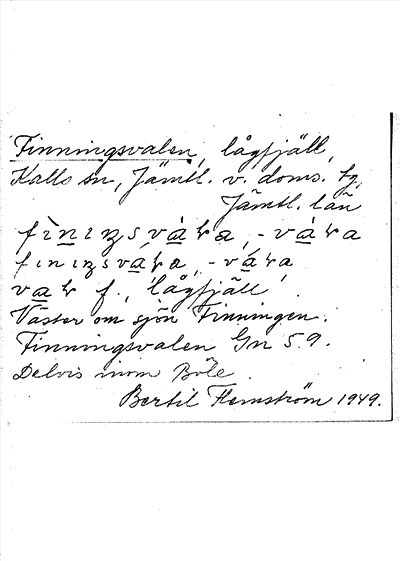 Finningsvalen, lågfjäll,
Kalls sn, Jämtl. v. doms. tg,
Jämtl. län
fìnıŋsvàɽa, -vàɽa
fınıŋsvaɽa, -váɽa
vaɽ f., 'lågfjäll'.
Väster om sjön Finningen.
Finningsvalen Gn 59.
Delvis inom Böle.
Bertil Flemström 1949.